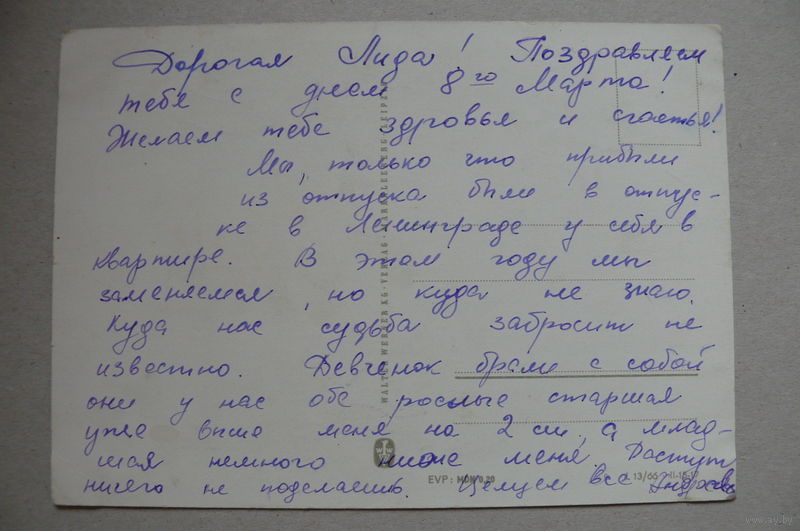 Дорогая Лида! Поздравляем
тебя с днем 8го Марта!
Желаем тебе здоровья и счастья!
Мы, только что прибыли
из отпуска были в отпус-
ке в Ленинграде у себя в
квартире. В этом году мы
заменяемся, но куда не знаю.
Куда нас судьба забросит не
известно. Девченок брали с собой
они у нас обе рослые старшая
уже выше меня на 2 см, а млад-
шая немного ниже меня Растут
ничего не поделаешь. Целуем все
WALTER WERNER KG · VERLAG ·
EVP: MDN 0,20
13/66
www.ay.by